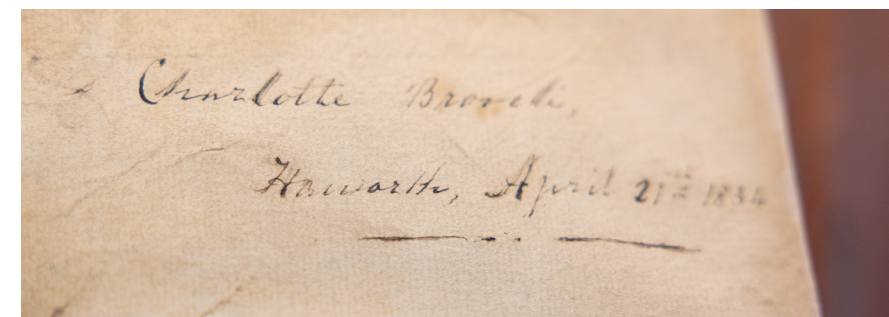 Charlotte Brontë,
Haworth, April 21st 1834